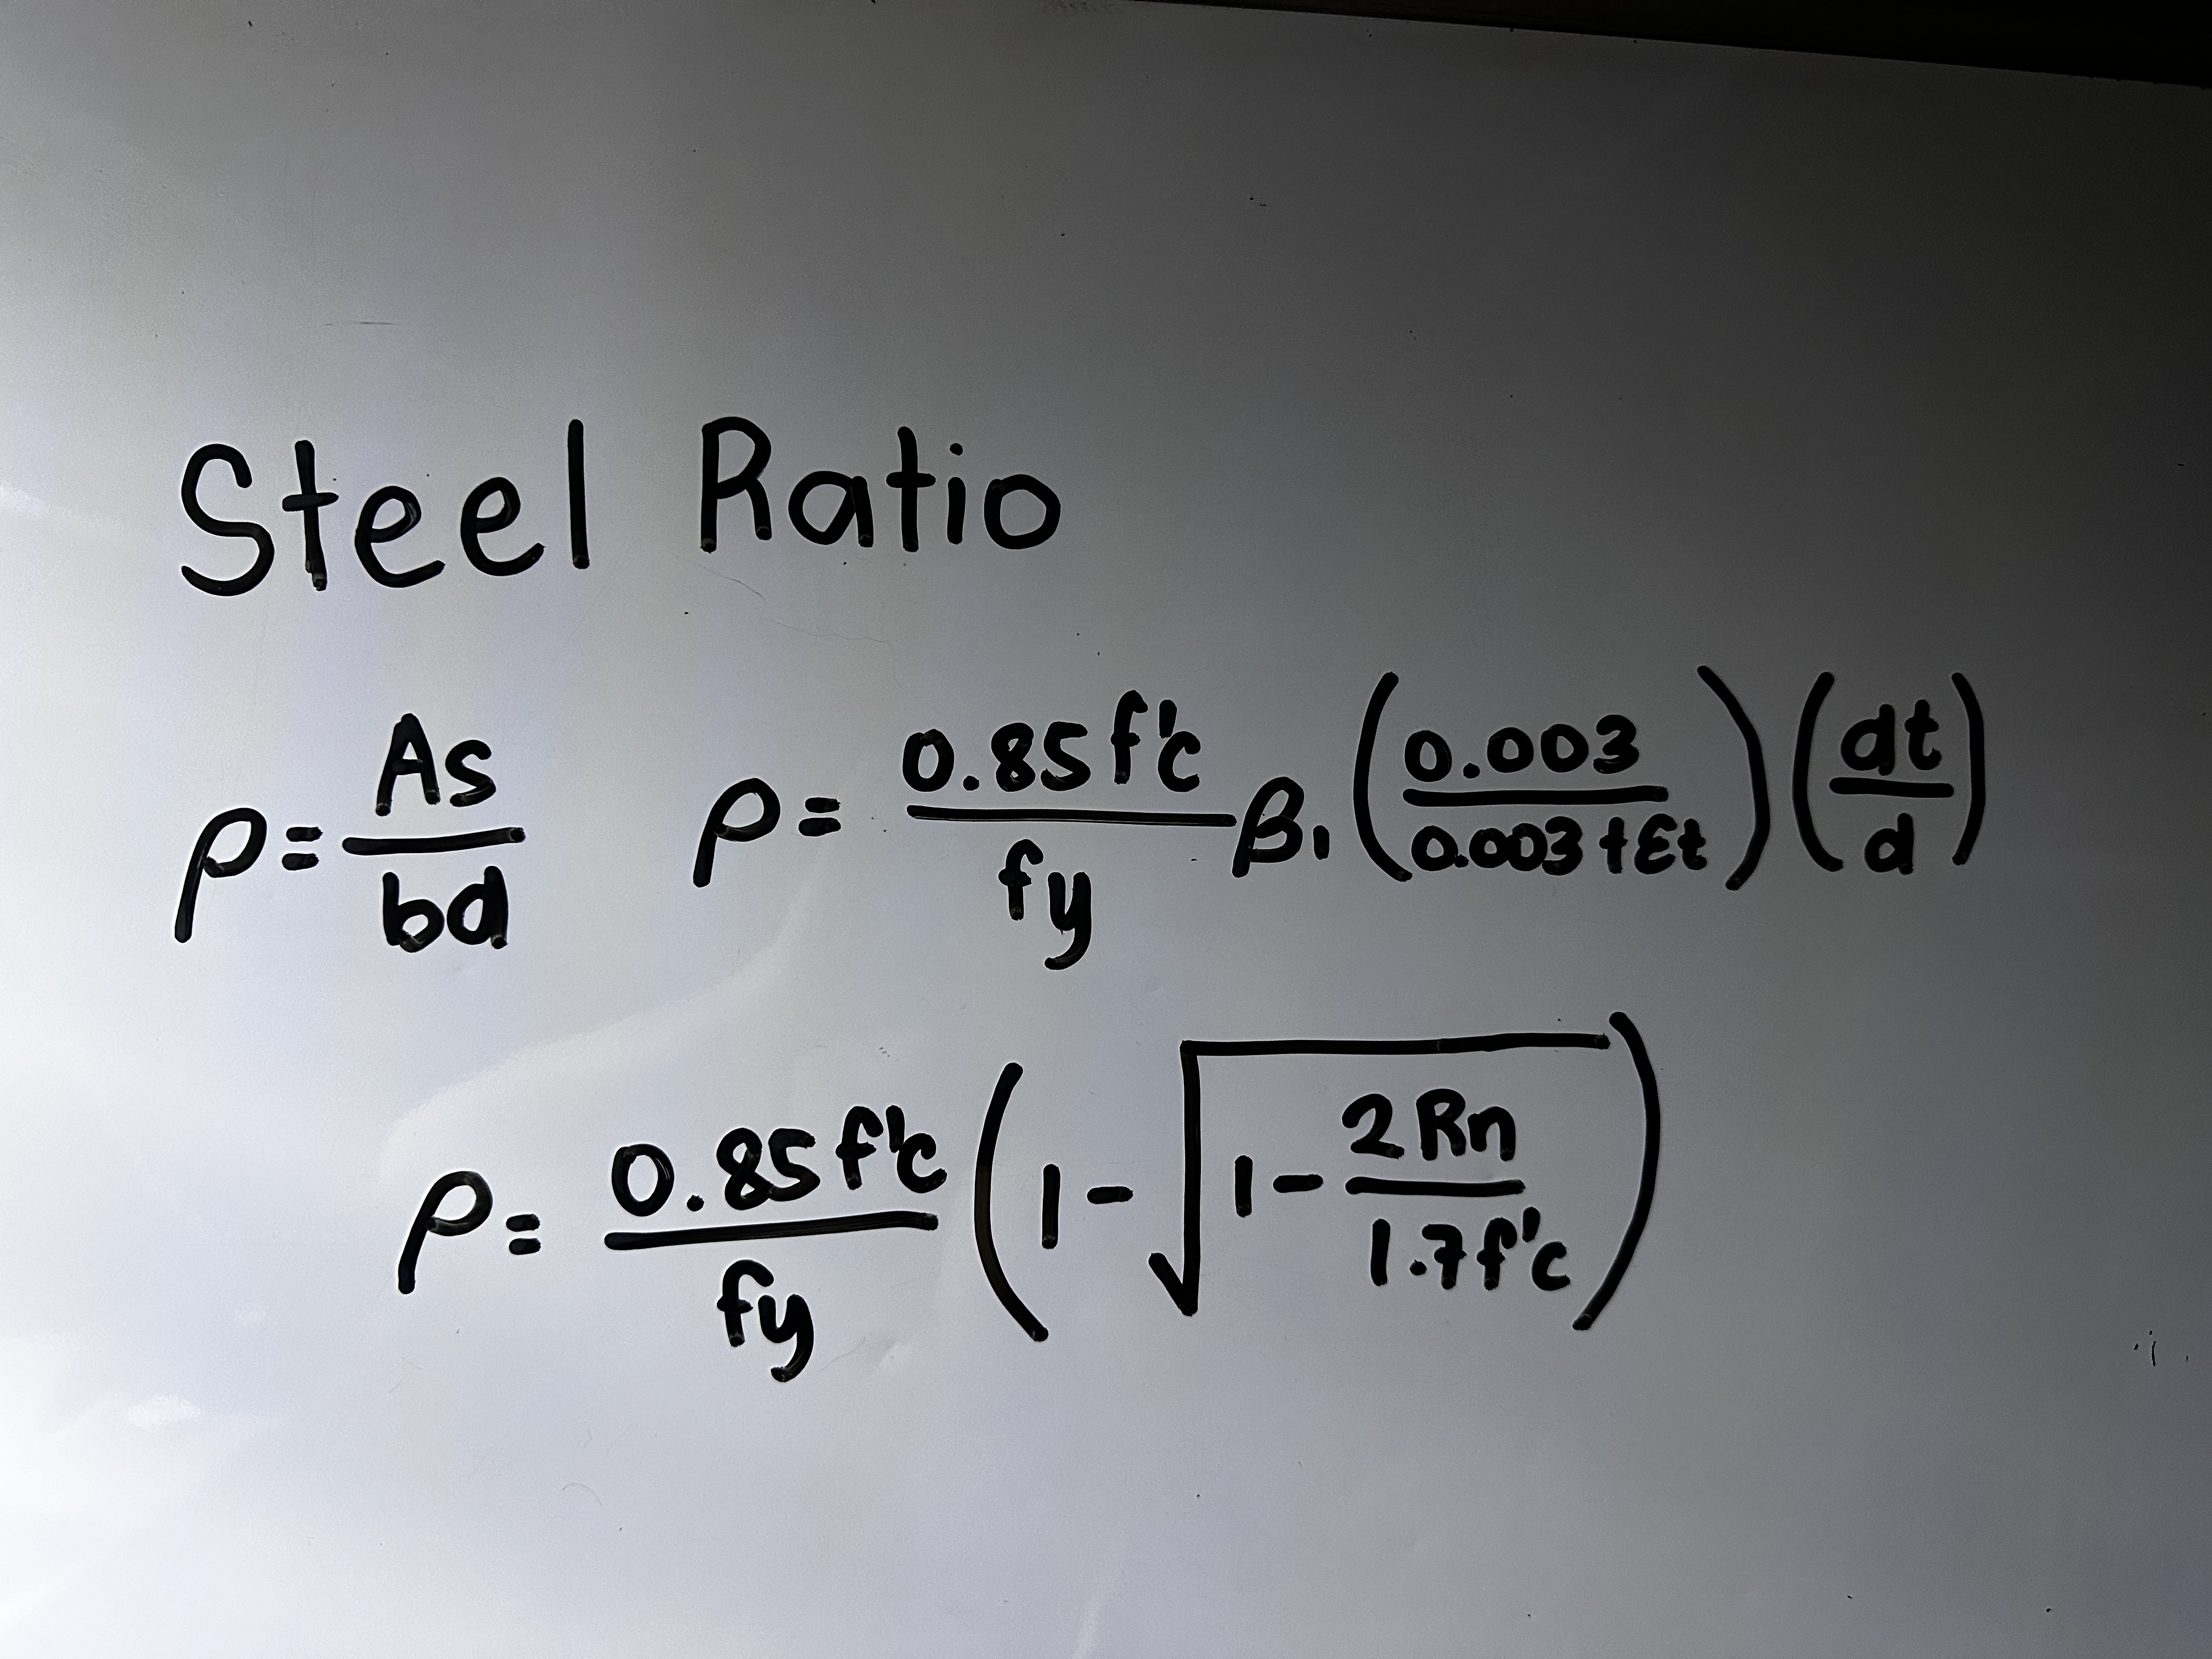 Steel Ratio
ρ = As/bd ρ = 0.85f'c/fy β₁ (0.003/0.003+εt) (dt/d)
ρ = 0.85f'c/fy (1 - √(1 - 2Rn/1.7f'c))